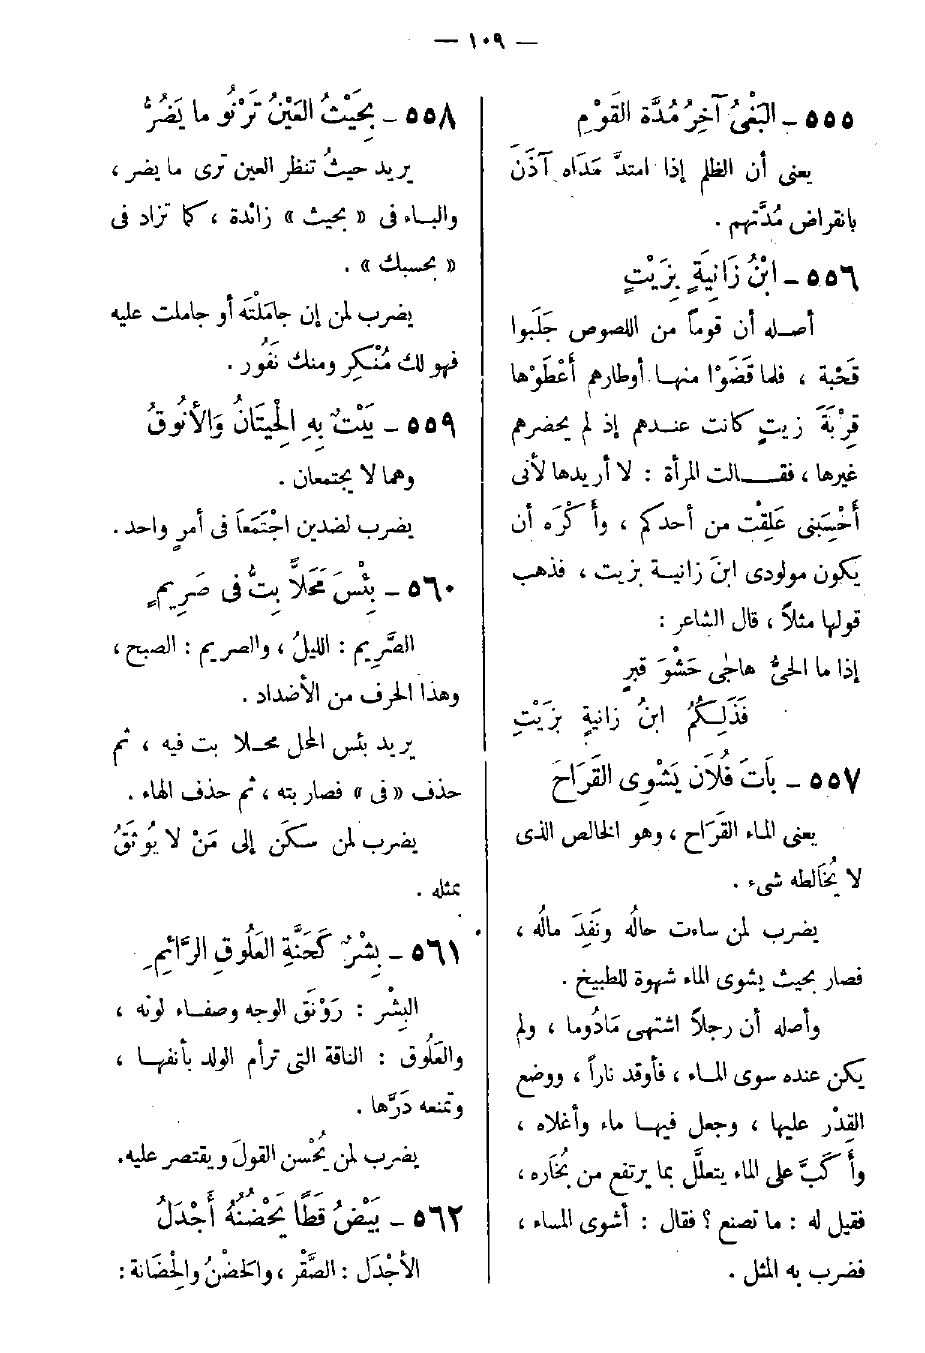 — ١٠٩ —
٥٥٥ – البَغْىُ آخِرُ مُدَّة القَوْمِ
يعنى أن الظلم إذا امتدَّ مَدَاه آذَنَ
بانقراض مُدَّتهم .
٥٥٦ – ابْنُ زَانِيَةٍ بِزَيْتٍ
أصله أن قوماً من اللصوص جَلَبوا
قَحْبة ، فلما قَضَوْا منها أوطارهم أَعْطَوْها
قِرْبَةَ زيتٍ كانت عندهم إذ لم يحضرهم
غيرها ، فقالت المرأة : لا أريدها لأنى
أحْسِبنى عَلِقْت من أحدكم ، وأَكْرَه أن
يكون مولودى ابنَ زانية بزيت ، فذهب
قولها مثلاً ، قال الشاعر :
إذا ما الحىُّ هاجٰى حَشْوَ قبرٍ
فَذَلِكُمُ ابنُ زانيةٍ بزَيْتِ
٥٥٧ – بَاتَ فُلَان يَشْوِى القَرَاحَ
يعنى الماء القَرَاح ، وهو الخالص الذى
لا يُخَالطه شىء .
يضرب لمن ساءت حالُه ونَفِدَ مالُه ،
فصار بحيث يشوى الماء شهوة للطبيخ .
وأصله أن رجلاً اشتهى مَادُوما ، ولم
يكن عنده سوى الماء ، فأوقد ناراً ، ووضع
القِدْر عليها ، وجعل فيها ماء وأغلاه ،
وأَكَبَّ على الماء يتعلَّل بما يرتفع من بُخَاره ،
فقيل له : ما تصنع ؟ فقال : أشوى الماء ،
فضرب به المثل .
٥٥٨ – بِحَيْثُ العَيْنُ تَرْنُو ما يَضُرُّ
يريد حيثُ تنظر العين ترى ما يضر ،
والباء فى « بحيث » زائدة ، كما تزاد فى
« بحسبك » .
يضرب لمن إن جامَلْتَه أو جاملت عليه
فهو لك مُنْكِر ومنك نَفُور .
٥٥٩ – بَيْتٌ بِهِ الحِيتَانُ وَالأَنُوقُ
وهما لا يجتمعان .
يضرب لضدين اجْتَمَعَا فى أمرٍ واحد .
٥٦٠ – بِئْسَ مَحَلاًّ بِتُّ فى صَرِيمٍ
الصَّرِيم : الليلُ ، والصريم : الصبح ،
وهذا الحرف من الأضداد .
يريد بئس المحل محلا بت فيه ، ثم
حذف « فى » فصار بته ، ثم حذف الهاء .
يضرب لمن سكَن إلى مَنْ لا يُوثَقُ
بمثله .
٥٦١ – بِشْرٌ كَحَنَّةِ العَلُوقِ الرَّائِمِ
البِشْر : رَوْنَق الوجه وصفاء لونه ،
والعَلُوق : الناقة التى ترأم الولد بأنفها ،
وتمنعه دَرَّها .
يضرب لمن يُحْسن القولَ ويقتصر عليه.
٥٦٢ – بَيْضُ قَطًا يَحْضُنُهُ أَجْدَلُ
الأَجْدَل : الصَّقْر ، والحَضْنُ والحِضَانة :